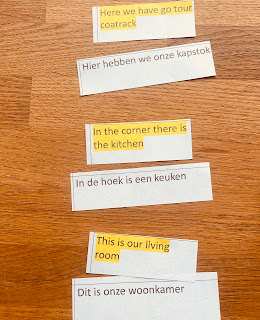 Here we have go tour
coatrack
Hier hebben we onze kapstok
In the corner there is
the kitchen
In de hoek is een keuken
This is our living
room
Dit is onze woonkamer